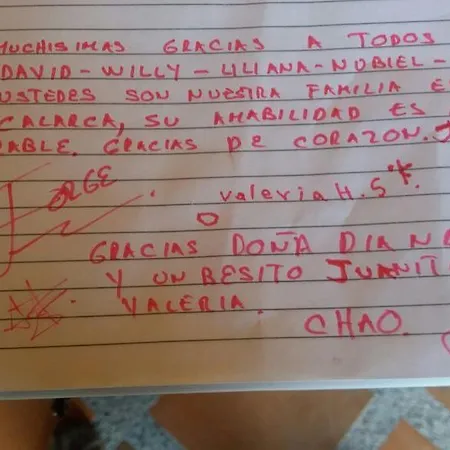 MUCHISIMAS GRACIAS A TODOS
DAVID - WILLY - LILIANA - NUBIEL -
USTEDES SON NUESTRA FAMILIA E
CALARCA, SU AMABILIDAD ES
DABLE. GRACIAS DE CORAZON.
JORGE
valeria H. S*.
GRACIAS DOÑA DIAN
Y UN BESITO JUANIT
VALERIA.
CHAO.